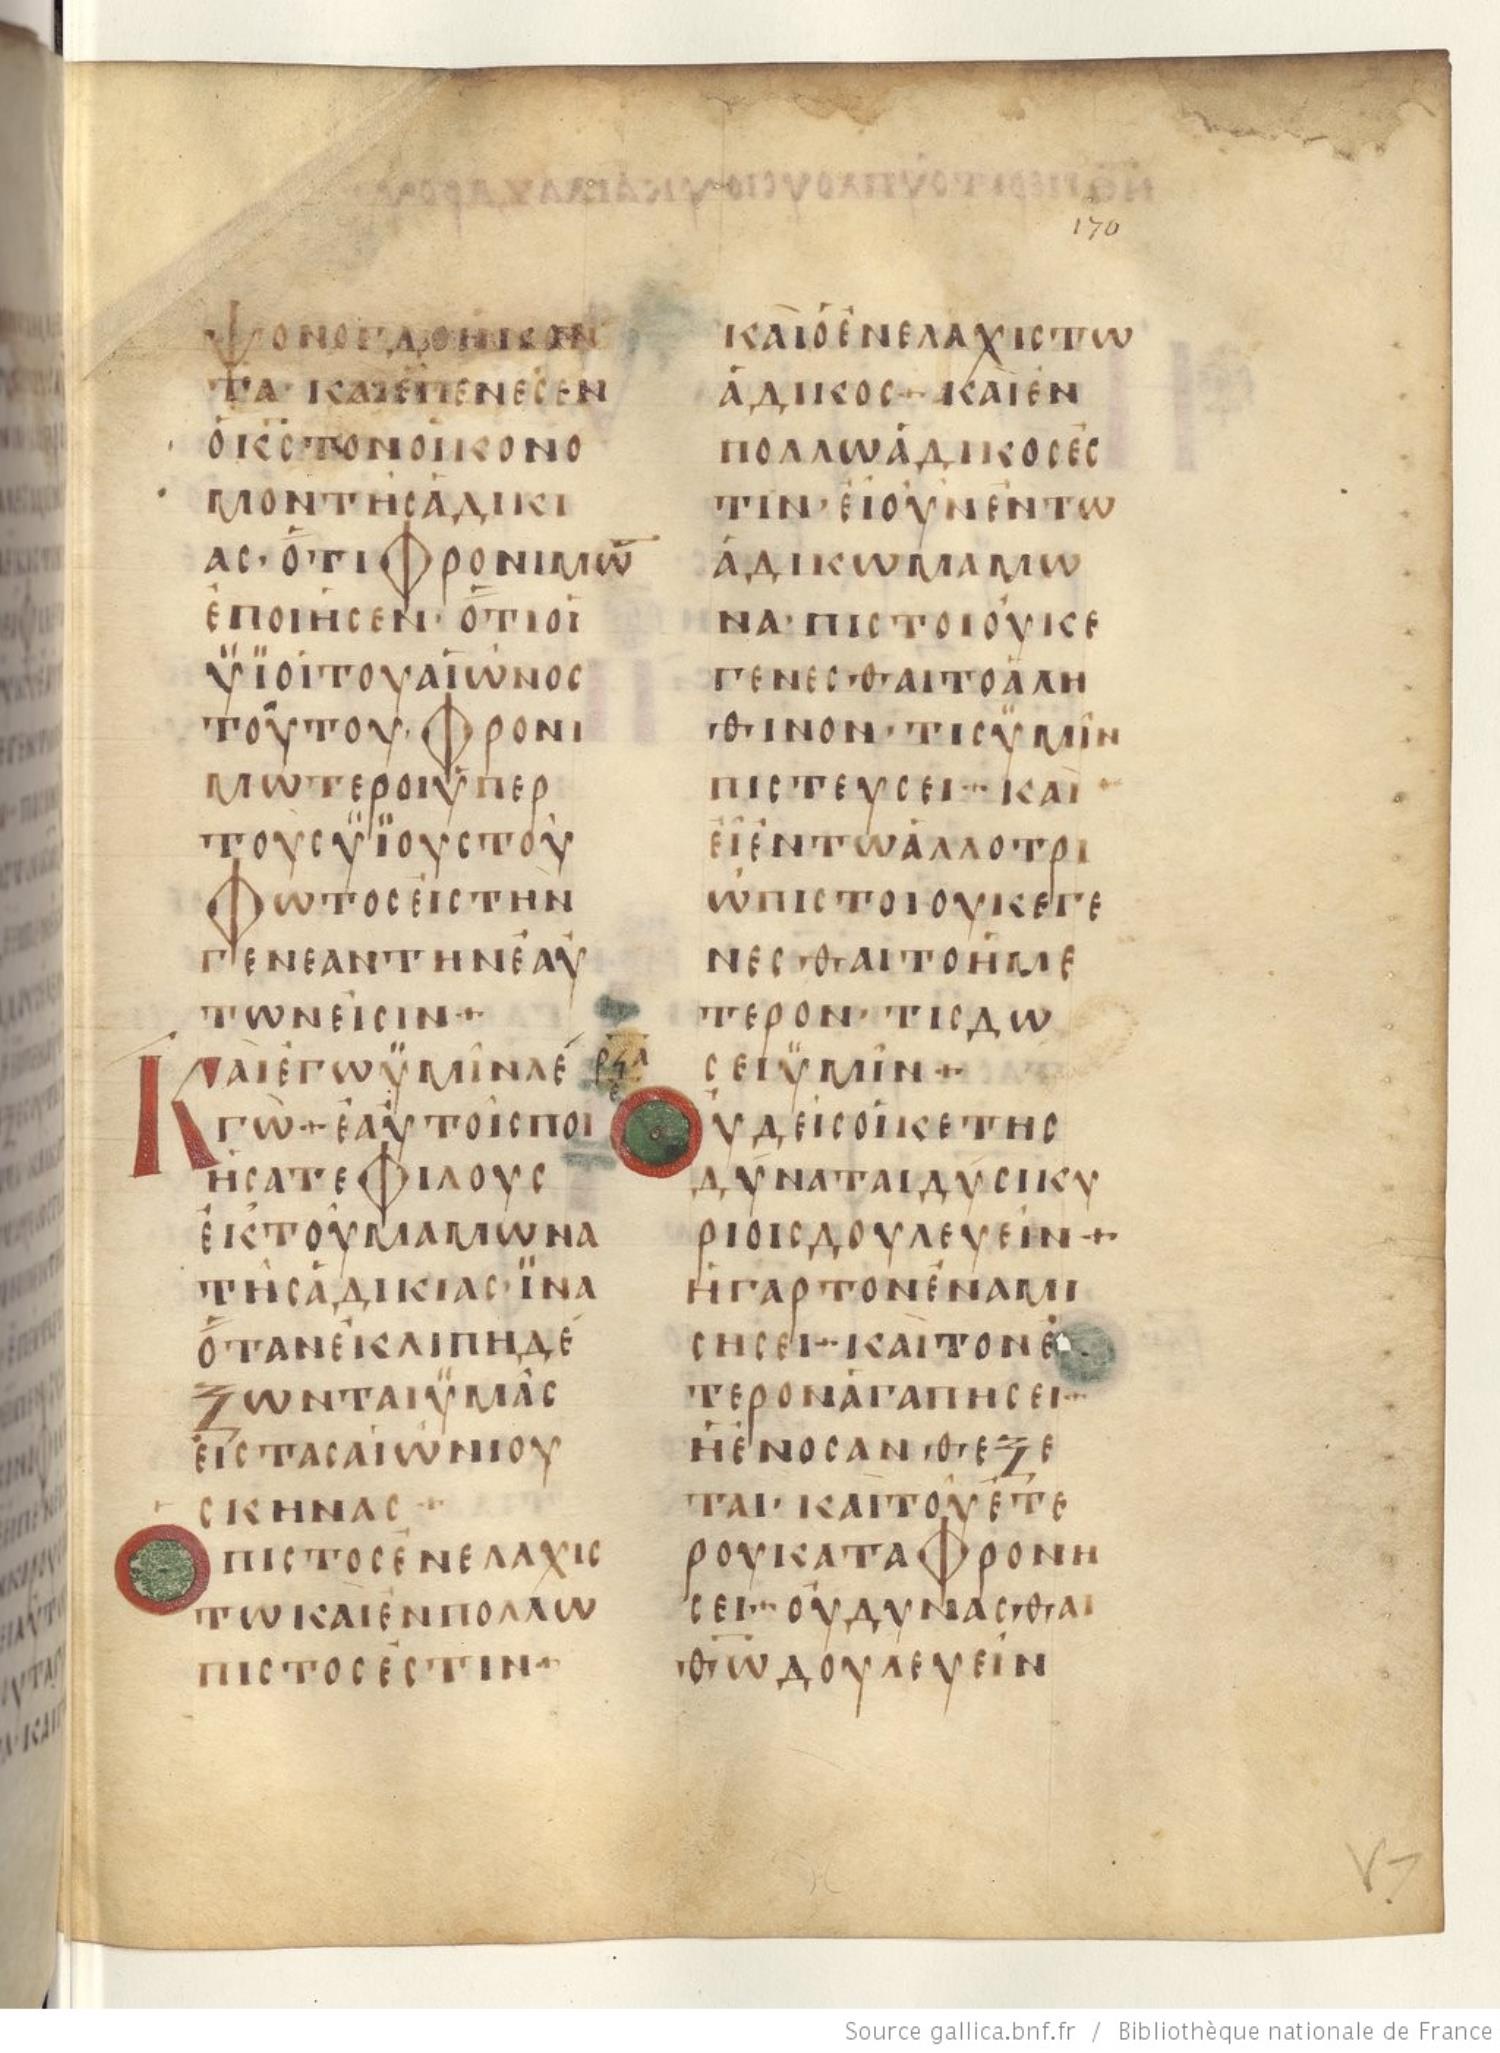 170
ψον ογδοηκον
τα· καὶ ἐπενεσεν
ὁ κ̅ς̅ τον οἰκονο
μον της ἀδικι
ας· ὅτι φρονιμω̅
ἐποιησεν· ὅτι οἱ
ϋϊοι του αἰωνος
τούτου· φρονι
μωτεροι ὑπερ
τους ϋϊους τοὺ
φωτος εἰς την
γενεαν την ἑαυ
των εἰσιν+
Καὶ ἐγω ϋμῖν λέ
γω+ ἑαυτοῖς ποι
ησατε φιλους
ἐκ τοῦ μαμωνα
της ἀδικιας· ϊνα
ὅταν ἐκλιπη δέ
ξωνται ϋμᾶς
εἰς τας αἰωνιου
σκηνας+
Ο πιστος ἐν ελαχισ
τω και ἐν πολλω
πιστος ἐστιν+
καὶ ὁ ἐν ελαχιστω
ἄδικος+ καὶ ἐν
πολλω ἄδικος ἐσ
τιν· εἰ οὐν ἐν τω
ἀδικω μαμω
να· πιστοι οὐκ ε
γενεσθαι το ἀλη
θινον· τις ϋμῖν
πιστευσει+ καὶ
εἰ ἐν τω ἀλλοτρι
ὡ πιστοι ουκ εγε
νεσθαι το ἡμε
τερον· τις δω
σει ϋμῖν+
ρϟα
ε
Ουδεἰς οἰκετης
δύναται δύσι κυ
ριοις δουλευεἰν+
ἠ γαρ τον ἑνα μι
σησει+ καὶ τον ἑ
τερον ἀγαπησει+
ἠ ἑνος ανθεξε
ται· καὶ τοῦ ἑτε
ρου καταφρονη
σει+ οὐ δυνασθαι
θ̅ω̅ δουλευεἰν
Source gallica.bnf.fr / Bibliothèque nationale de France